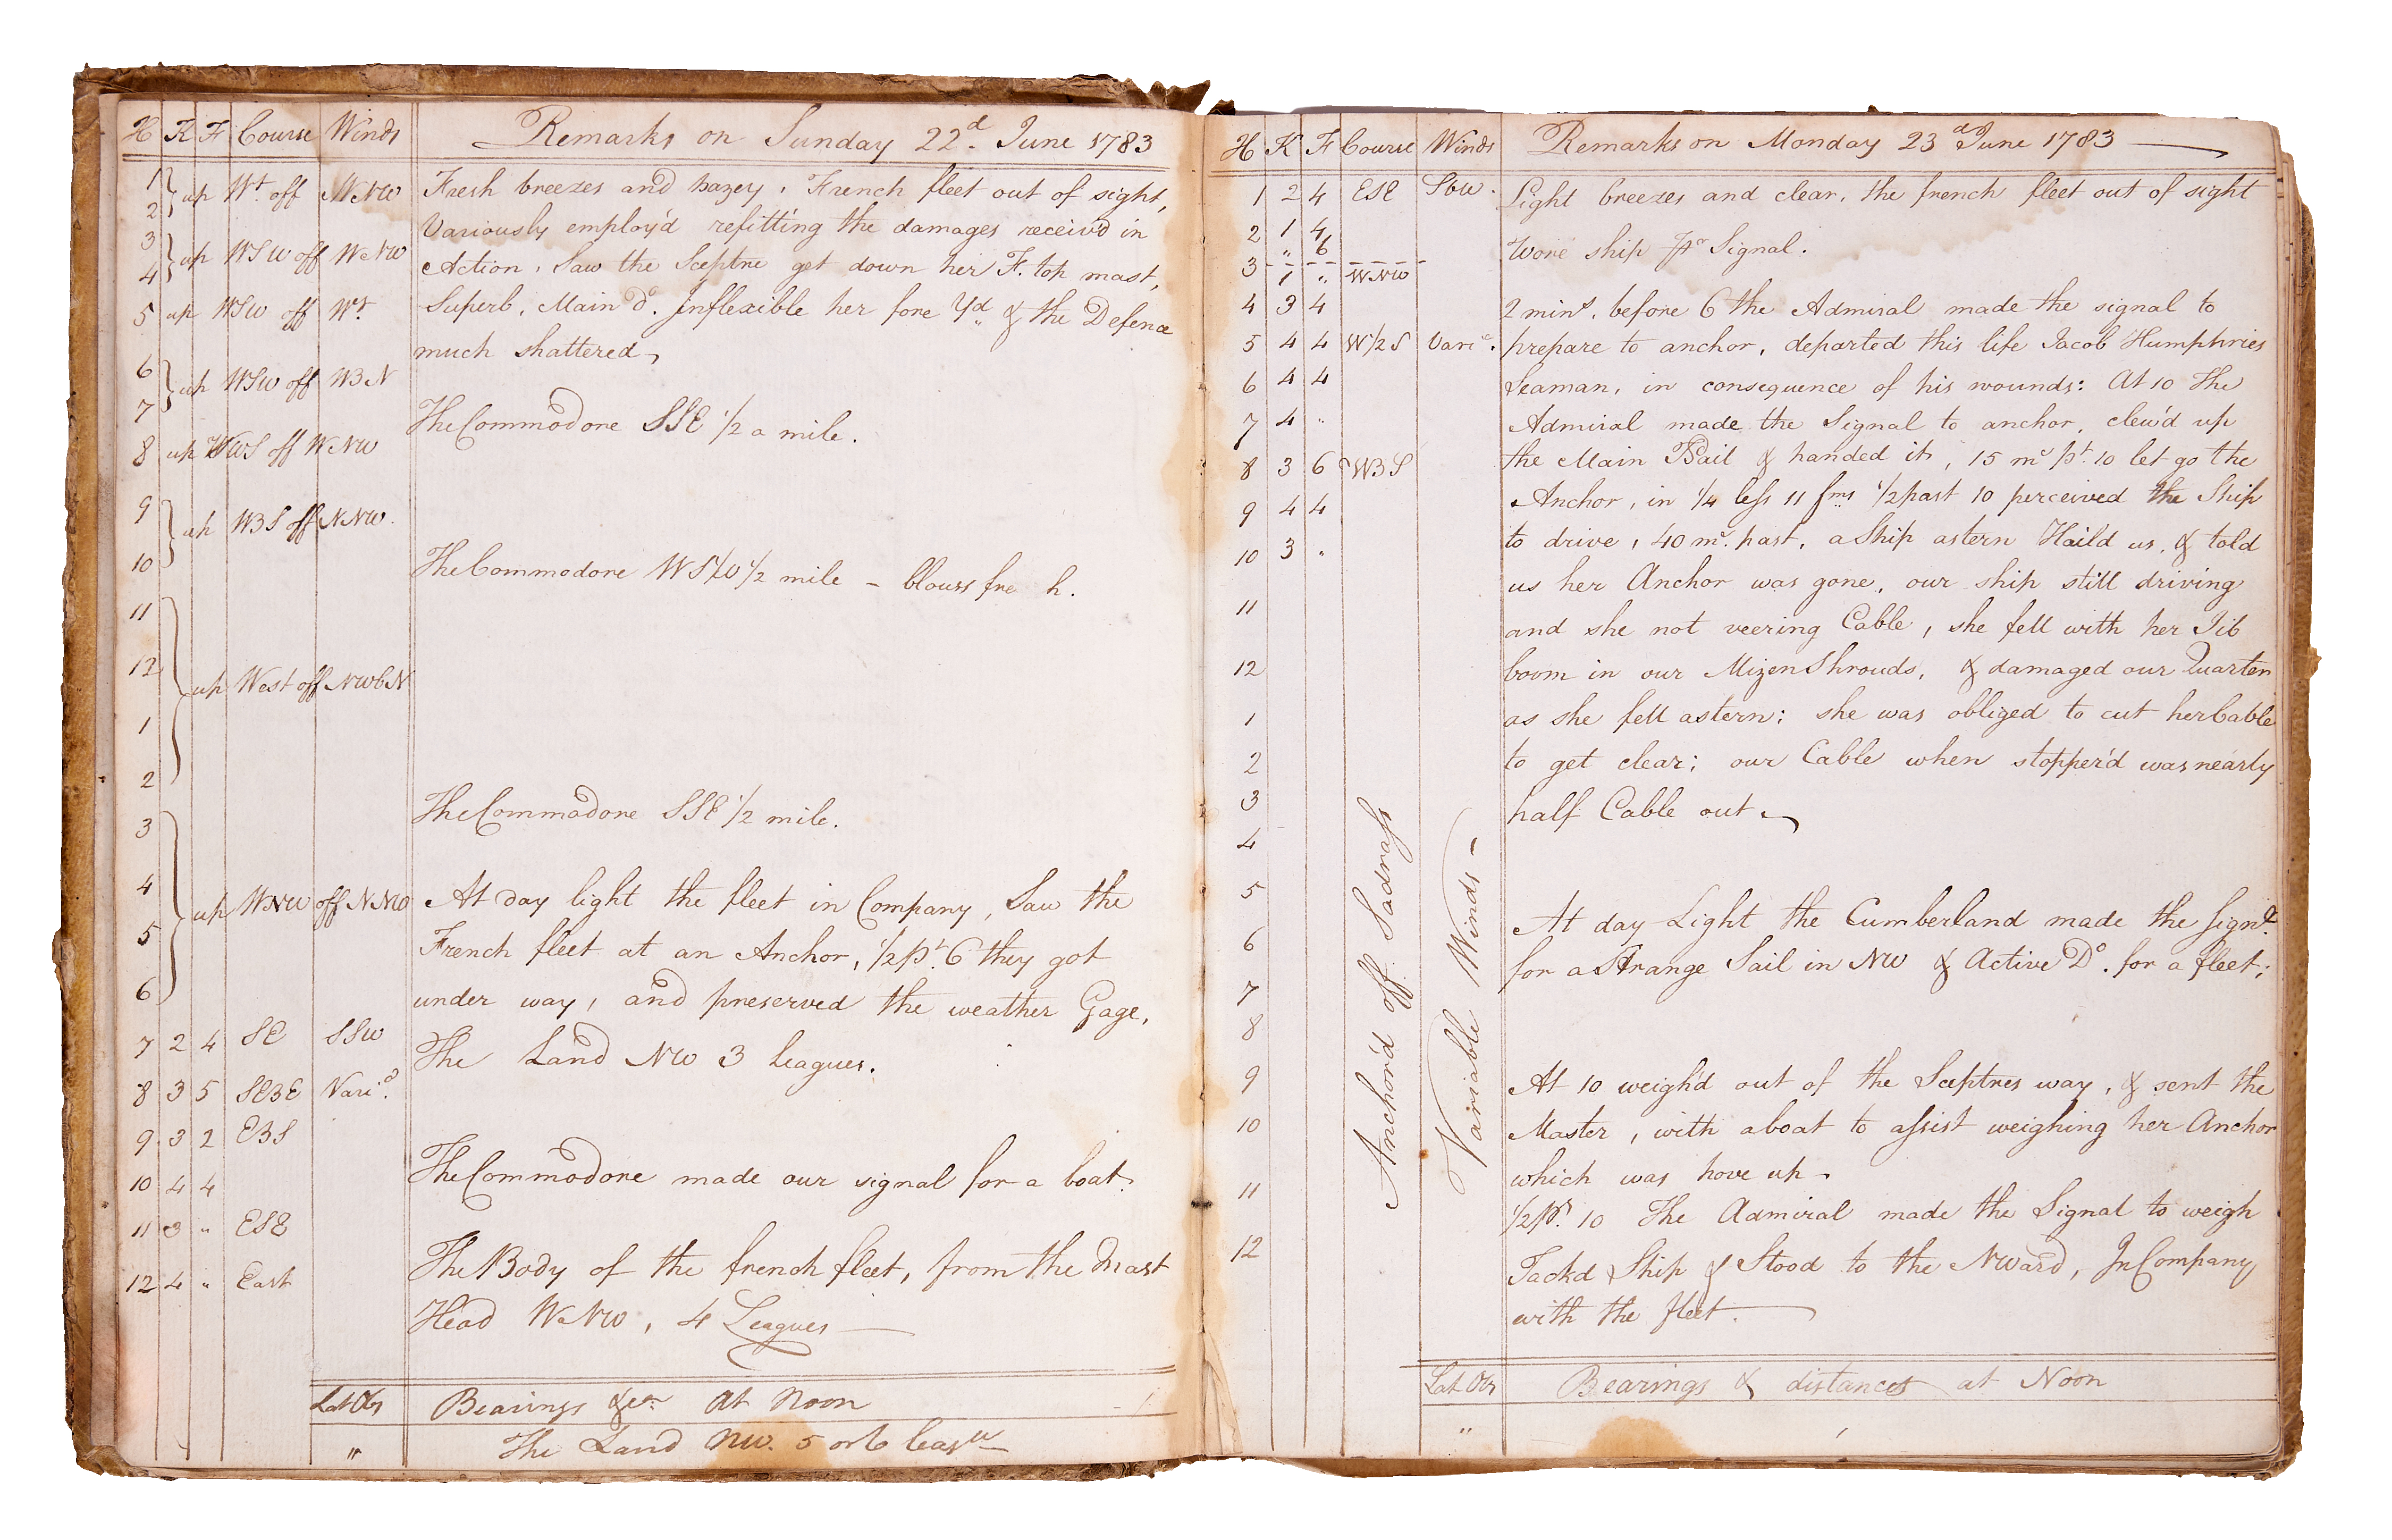 H K F Course Winds Remarks on Sunday 22d June 1783
1 2 up Wt off WNW Fresh breezes and hazey, French fleet out of sight,
Variously employ'd refitting the damages receiv'd in
3 4 up WSW off WNW Action, Saw the Sceptre get down her F. top mast,
5 up WSW off Wt Superb, Main Do. Inflexible her fore Yd & the Defence
much shattered
6 7 up WSW off WBN
The Commodore SSE 1/2 a mile.
8 up WBS off WNW
9 10 up WBS off NNW.
The Commodore WSW 1/2 mile - blows fre h.
11 12 1 2 up West off NWbN
The Commodore SSE 1/2 mile.
3 4 5 6 up WNW off NNW At day light the fleet in Company, Saw the
French fleet at an Anchor, 1/2 pt. 6 they got
under way, and preserved the weather Gage,
7 2 4 SE SSW The Land NW 3 Leagues.
8 3 5 SEBE Vari.
9 3 2 EBS
10 4 4 The Commodore made our signal for a boat.
11 3 " ESE
The Body of the french fleet, from the Mast
12 4 " East Head WNW, 4 Leagues
Lat Obs Bearings &ca. At Noon
" The Land NW. 5 or 6 leags
H K F Course Winds Remarks on Monday 23d June 1783
1 2 4 ESE Sbw. Light breezes and clear, the french fleet out of sight
2 1 4 Wore ship pr Signal.
" 6
3 1 " WNW
4 3 4 2 mins. before 6 the Admiral made the signal to
5 4 4 W1/2S Vari. prepare to anchor, departed this life Jacob Humphries
6 4 4 Seaman, in consequence of his wounds: At 10 the
7 4 " Admiral made the Signal to anchor, clew'd up
8 3 6 WBS the Main TSail & handed it, 15 ms pt. 10 let go the
9 4 4 Anchor, in 1/4 less 11 fms 1/2 past 10 perceived the Ship
10 3 " to drive, 40 ms. past, a Ship astern Haild us, & told
us her Anchor was gone, our ship still driving
11 and she not veering Cable, she fell with her Jib
12 boom in our Mizen Shrouds, & damaged our Quarter
1 as she fell astern; she was obliged to cut her Cable
2 to get clear; our Cable when stopper'd was nearly
3 half Cable out
4
5 At day Light the Cumberland made the Signl.
6 for a Strange Sail in NW & Active Do. for a fleet;
7
8
9 At 10 weigh'd out of the Sceptres way, & sent the
10 Master, with a boat to assist weighing her Anchor
which was hove up
11 1/2 pt. 10 The Admiral made the Signal to weigh
12 Tackd Ship & Stood to the NWard, In Company
with the fleet.
Anchor'd off Sadrass
Variable Winds
Lat Obs Bearings & distances at Noon
"